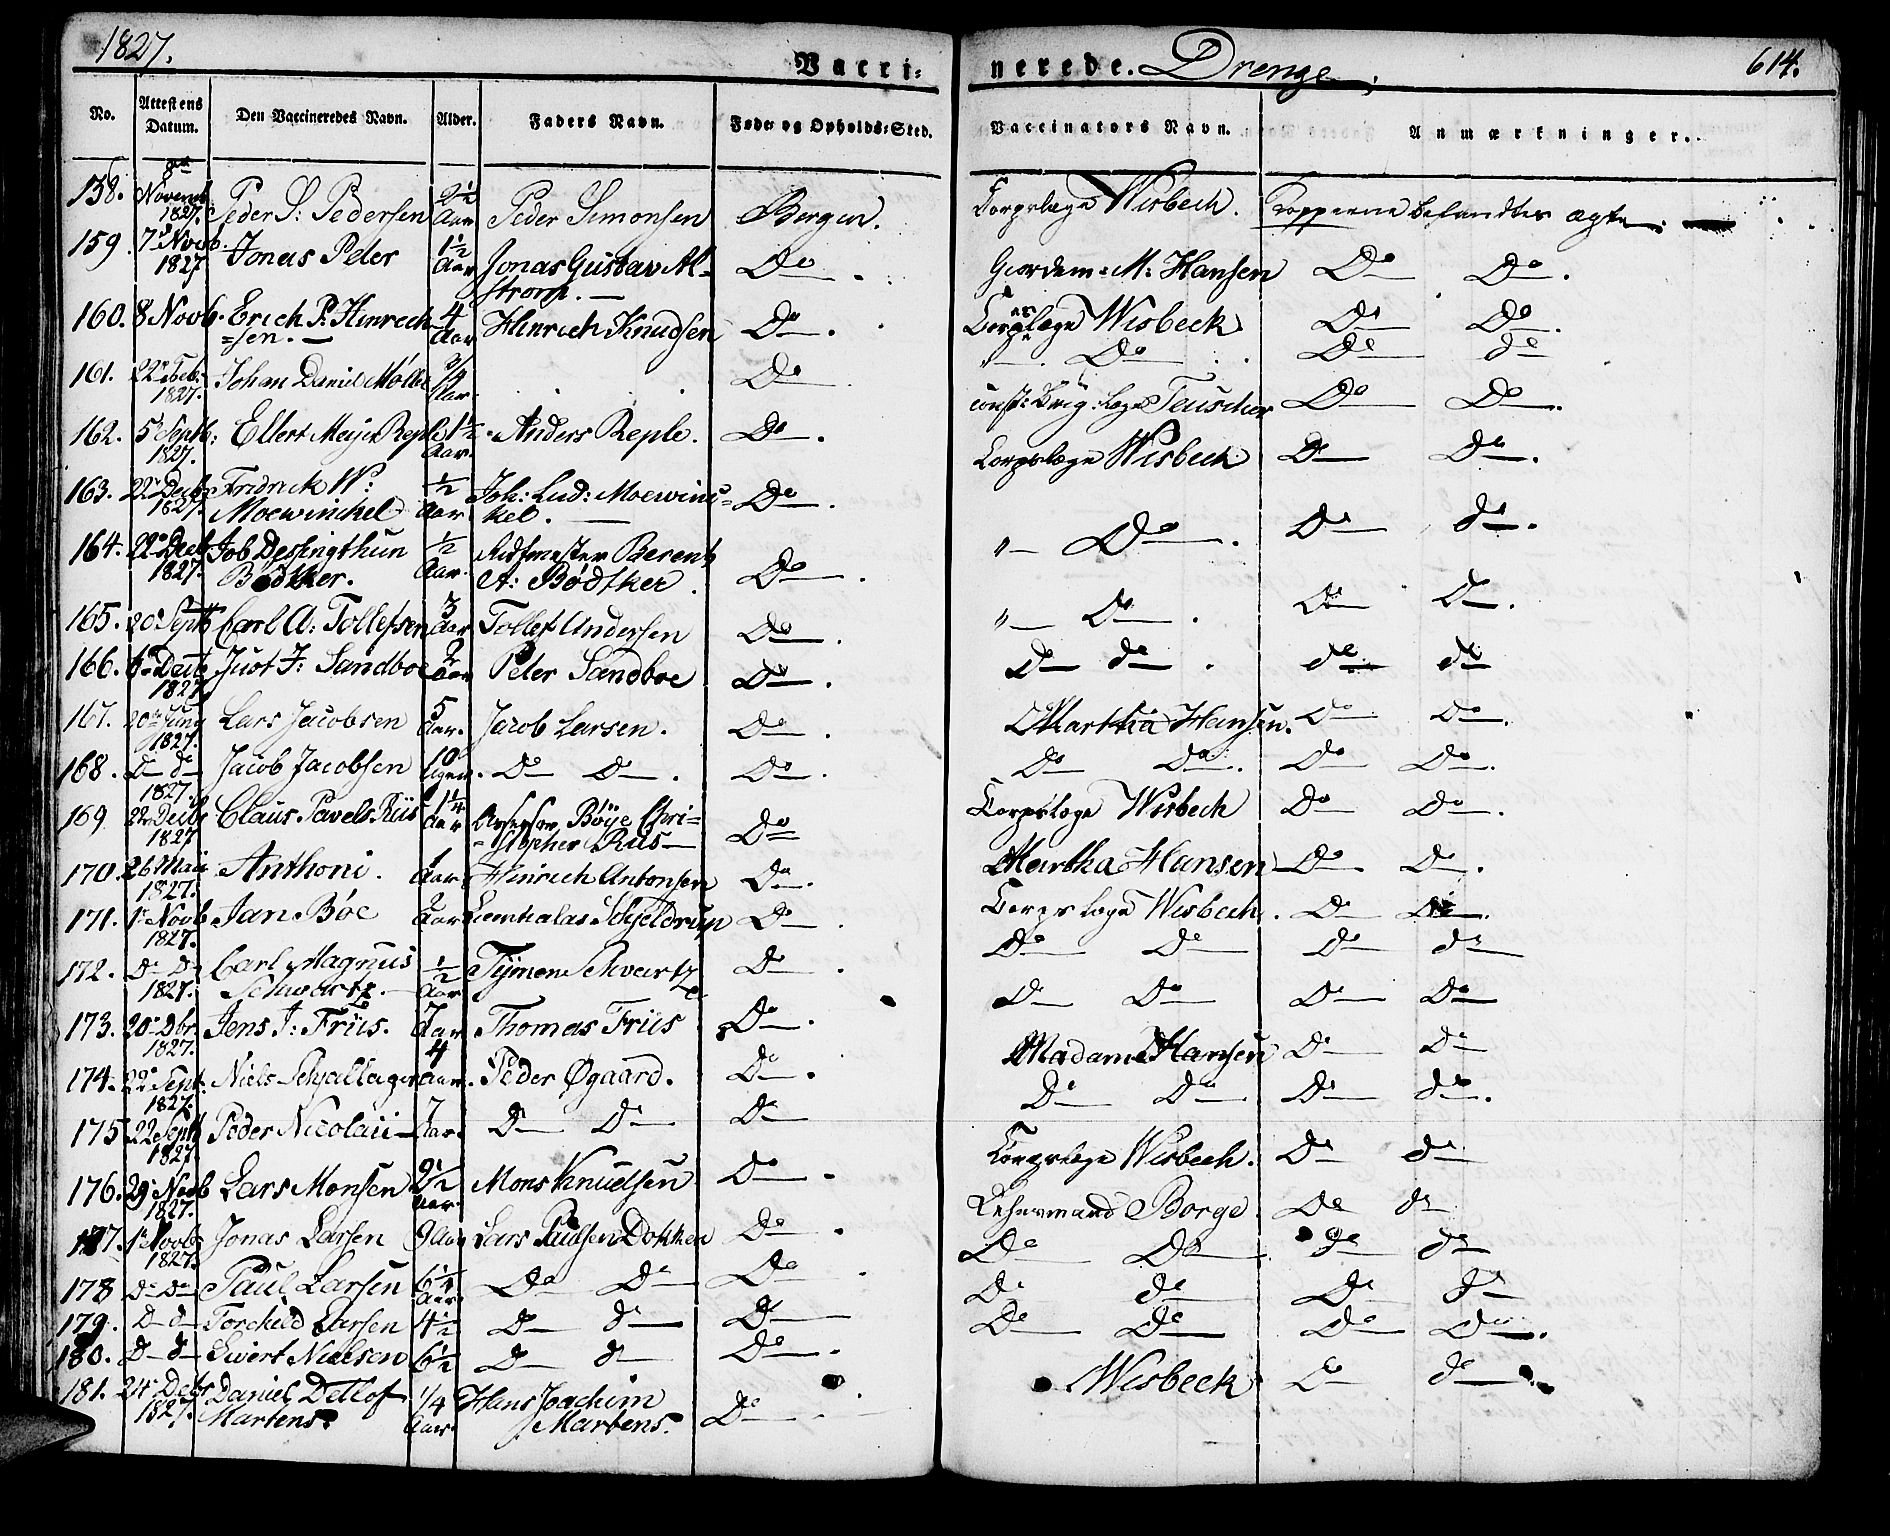 1827. Vacci= nerede. Drenge. 614.
No. Attestens Datum. Den Vaccineredes Navn. Alder. Faders Navn. Føde og Opholds=Sted. Vaccinators Navn. Anmærkninger.
158. 8de Novemb 1827. Peder S: Pedersen 2½ Aar Peder Simonsen Bergen. Corpslæge Wisbech. Kopperne befandtes ægte.
159. 7 Novb. 1827 Jonas Peter 1½ Aar Jonas Gustav Al=
strøm. — Do. Giordem: M: Hansen Do Do.
160. 8 Novb. Erich P: Hinrich
=sen. — 4 Aar Hinrich Knudsen Do. Corpslæge Wisbeck Do Do.
161. 22 Feb: 1827. Johan Daniel Møller 3/4 Aar Do " Do Do do
162. 5 Septb: 1827. Ellert Meyer Reple 1½ Aar. Anders Reple. Do. const: Brig. læge Teuscher Do Do.
163. 22 Decbr 1827. Fridrick W:
Moewinckel ½ Aar Joh: Lud: Moewinc=
kel. — Do. Corpslæge Wisbech Do do.
164. 22 Decb 1827. Job
Bødtker. ½ Aar. Ridtmester Berent
A: Bødtker. Do. " Do. Do do.
165. 20 Septb Carl A: Tollefsen 3 Aar Tollef Andersen Do. " Do. Do Do.
166. 6 Decb 1827 Just J: Sandboe 2 Aar Peter Sandboe Do. Do do. do do
167. 20 Juny 1827. Lars Jacobsen 5 Aar. Jacob Larsen. Do. Martha Hansen. Do Do.
168. Do do 1827. Jacob Jacobsen 10 Uger. Do Do. Do. Do Do. Do Do.
169 22 Decbr 1827 Claus Pavels Riis 1¼ Aar Assessor Böye Chri=
=stopher Riis — Do Corpslæge Wisbech Do Do.
170. 26 Maii 1827. Anthoni. 1 Aar. Hinrich Antonsen Do. Martha Hansen Do. Do.
171. 1 Novb 1827. Jan Bøe 2 Aar Schjeldrup Do. Corpslæge Wisbech. Do Do.
172. Do Do 1827. Carl Magnus
Schwartz. ½ Aar Tÿmen Schvartz Do. Do Do Do do
173. 20 Dbr. 1827. Jens J: Friis. 7 Aar Thomas Friis Do. Do Do Do Do
174. 22 Sept. 1827. Niels Schjallager 4 Aar. Peder Øgaard. Do. Madame Hansen Do Do
175 22 Septb 1827. Peder Nicolaii — 7 Aar. Do Do Do Do Do Do do.
176. 29 Novb 1827. Lars Monsen 2½ Aar. Mons Knudsen Do. Corpslæge Wisbech. Do do
177. 1 Novb 1827. Jonas Larsen 9 Aar Lars Paulsen Dokken Do. Lehnsmand Borge Do do
178 Do Do Paul Larsen 6¼ Aar. Do Do Do. Do Do do do
179. Do do Torchild Larsen 4½ Do do Do Do do Do do
180. Do do Sivert Nielsen 6½ Do do Do. Do Do Do Do.
181. 24 Debr 1827. Daniel Detlof
Martens. ¼ Aar. Hans Joachim
Martens. Do. Wisbeck Do do.